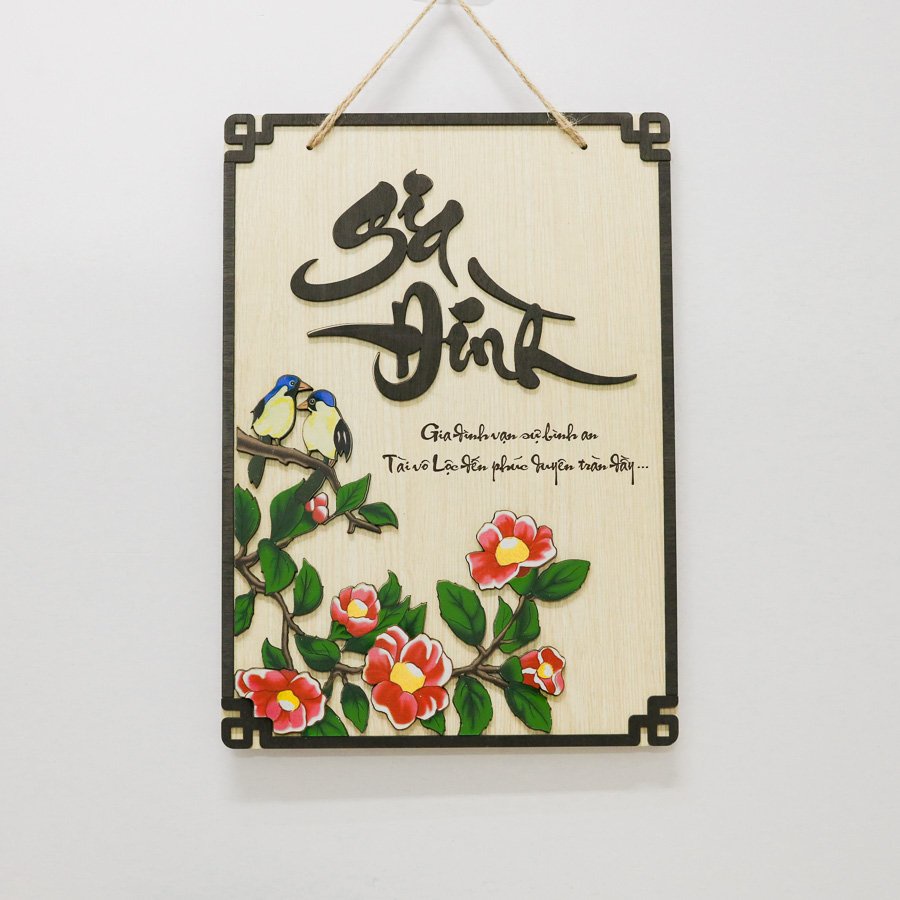 Gia
Đình
Gia đình vạn sự bình an
Tài vô Lộc đến phúc duyên tràn đầy...